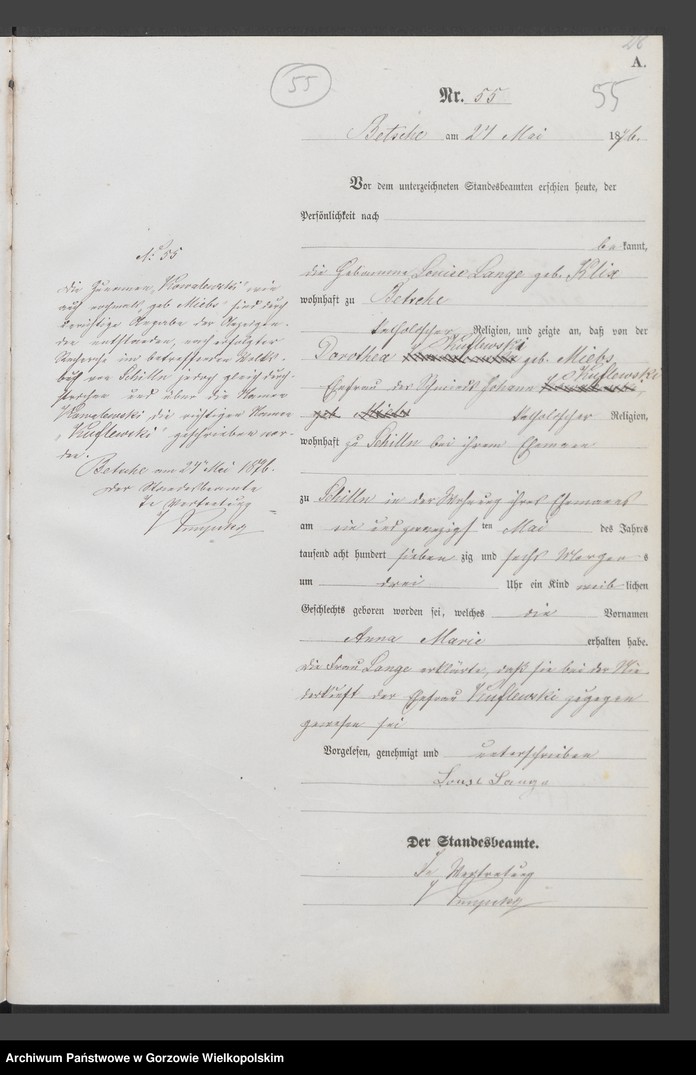 28
A.
55
55
Nr. 55
Betsche am 27 Mai 1876.
Vor dem unterzeichneten Standesbeamten erschien heute, der
Persönlichkeit nach
bekannt,
die Hebamme Louise Lange geb. Klix
wohnhaft zu Betsche
katholischer Religion, und zeigte an, daß von der
Kuflewski
Dorothea geb. Miebs
Kuflewski
Ehefrau des Schmieds Johann
geb. Miebs katholischer Religion,
wohnhaft zu Schilln bei ihrem Ehemann
zu Schilln in der Wohnung ihres Ehemanns
am ein und zwanzigsten Mai des Jahres
tausend acht hundert sieben zig und sechs Morgens
um drei Uhr ein Kind weiblichen
Geschlechts geboren worden sei, welches die Vornamen
Anna Marie erhalten habe.
die Frau Lange erklärte, daß sie bei der Nie-
derkunft der Ehefrau Kuflewski zugegen
gewesen sei
Vorgelesen, genehmigt und unterschrieben
Louse Lange
Der Standesbeamte.
In Vertretung
No 55
die Namen "Kowalewski" wie
auch nochmals geb. Miebs sind durch
unrichtige Angabe der Anzeigen-
den entstanden, nach erfolgter
im betreffenden
von Schilln jedoch gleich durch-
strichen und über die Namen
Kowalewski die richtigen Namen
"Kuflewski" geschrieben wor-
den.
Betsche am 27 Mai 1876.
Der Standesbeamte
In Vertretung
Archiwum Państwowe w Gorzowie Wielkopolskim